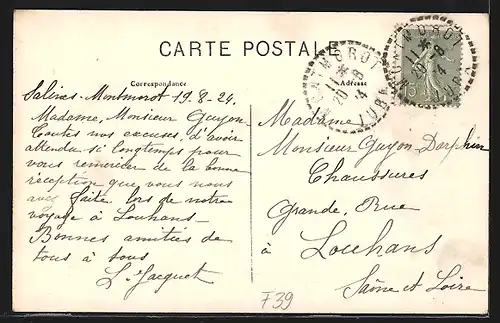 CARTE POSTALE
Correspondance
Adresse
Salines-Montmorot 19.8.24.
Madame, Monsieur Guyon.
Toutes nos excuses, d'avoir
attendu si longtemps pour
vous remercier de la bonne
réception que vous nous
avez faite lors de notre
voyage à Louhans.
Bonnes amitiés de
tous à tous
L. Jacquet
Madame,
Monsieur Guyon-Dorphin
Chaussures
Grande, Rue
à Louhans
Saône et Loire
MONTMOROT
JURA
20 - 8
24
MONTMOROT
JURA
20 - 8
24
15
F39